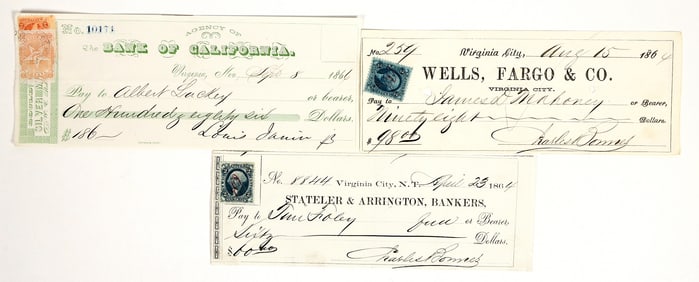 No. 10171
AGENCY OF
The BANK OF CALIFORNIA.
Virginia, Nev. Sept 8 1866
Pay to Albert Lackey or bearer,
One Hundred & eighty six Dollars.
$ 186 — Louis Janin
SILVER
No. 239 Virginia City, Aug 15 1864
WELLS, FARGO & CO.
VIRGINIA CITY.
Pay to James D. Mahoney or Bearer,
Ninety eight Dollars.
$ 98 00 Charles Bonner
No. 8844 Virginia City, N.T. April 23 1864
STATELER & ARRINGTON, BANKERS,
Pay to Tim Foley or Bearer
Sixty Dollars.
$ 60 00 Charles Bonner